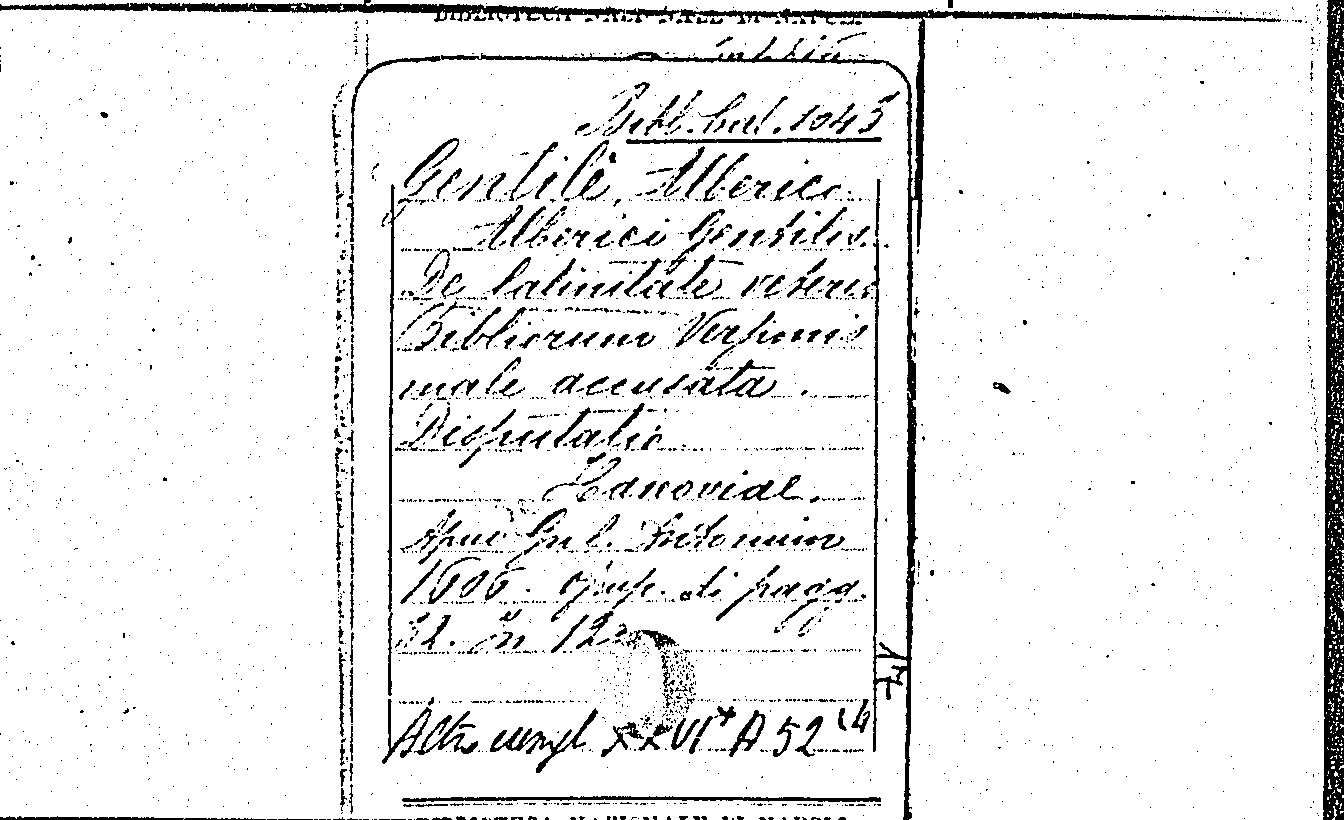 BIBLIOTECA NAZIONALE DI NAPOLI
Bibl. Cat. 1045
Gentile, Alberico
Alberici Gentilis.
De latinitate veteris
Bibliorum Versionis
male accusata.
Disputatio
Hanoviae.
Apud Gul. Antonium
1606. Opusp. di pagg.
32. In 12°
Altro esempl XXVI* A 52 (4
BIBLIOTECA NAZIONALE DI NAPOLI